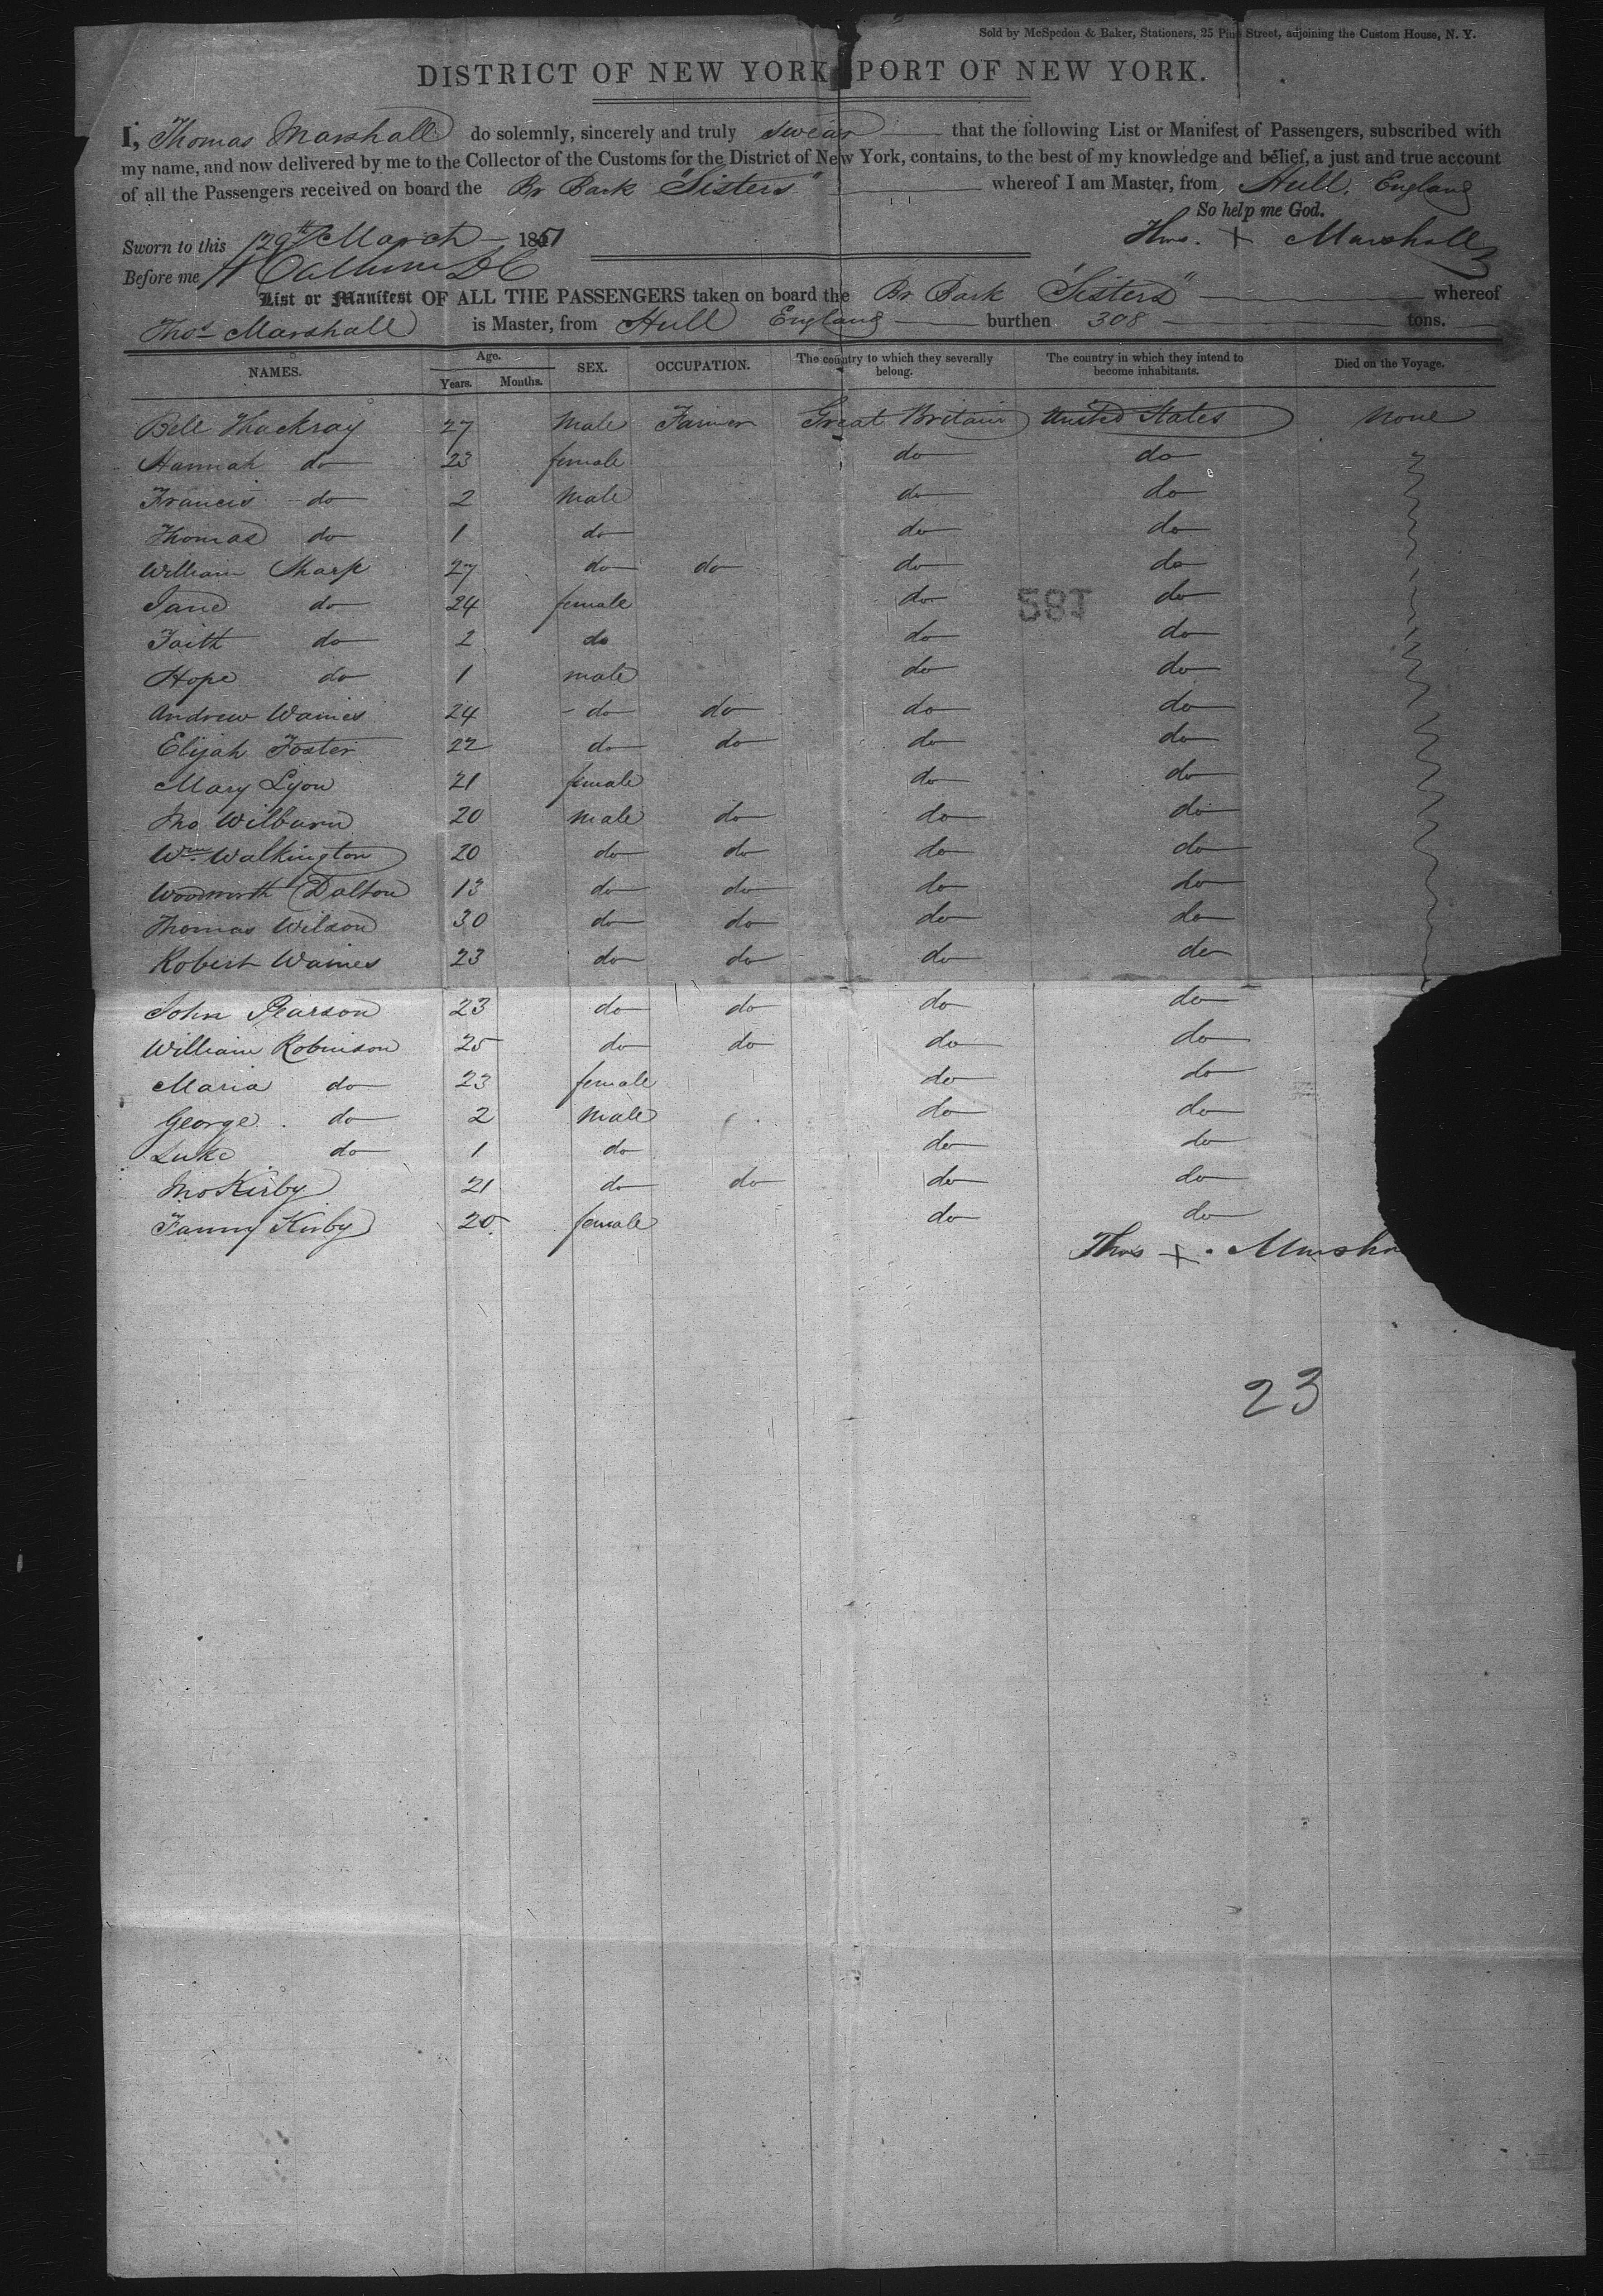 Sold by McSpedon & Baker, Stationers, 25 Pine Street, adjoining the Custom House, N. Y.
DISTRICT OF NEW YORK PORT OF NEW YORK.
I, Thomas Marshall do solemnly, sincerely and truly swear that the following List or Manifest of Passengers, subscribed with
my name, and now delivered by me to the Collector of the Customs for the District of New York, contains, to the best of my knowledge and belief, a just and true account
of all the Passengers received on board the Br Bark "Sisters" whereof I am Master, from Hull, England
So help me God.
Sworn to this 29th March 1851 Thos. X Marshall
Before me
List or Manifest OF ALL THE PASSENGERS taken on board the Br Bark "Sisters" whereof
Thos Marshall is Master, from Hull England burthen 308 tons.
NAMES. Age. Years. Months. SEX. OCCUPATION. The country to which they severally belong. The country in which they intend to become inhabitants. Died on the Voyage.
Bell Thackray 27 Male Farmer Great Britain United States None
Hannah do 23 female do do
Francis do 2 Male do do
Thomas do 1 do do do
William Sharp 27 do do do do
Jane do 24 female do do
Faith do 2 do do do
Hope do 1 male do do
Andrew Waines 24 do do do do
Elijah Foster 22 do do do do
Mary Lyon 21 female do do
Jno Wilburn 20 Male do do do
Wm Walkington 20 do do do do
Woodworth Dalton 13 do do do do
Thomas Wilson 30 do do do do
Robert Waines 23 do do do do
John Pearson 23 do do do do
William Robinson 25 do do do do
Maria do 23 female do do
George do 2 Male do do
Luke do 1 do do do
Jno Kirby 21 do do do do
Fanny Kirby 20 female do do
Thos X Marsha
23